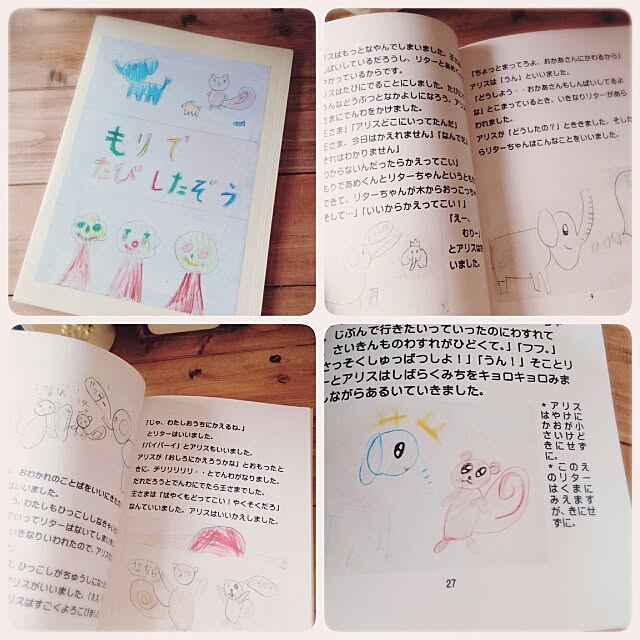 もりで
たびしたぞう
リスはもっとなやんでしまいました。王さ
しんぱいしているだろうし、リターとあめく
がっているからです。
リスはたびにでることにしました。たびに
んなどうぶつとなかよしになろう、アリス
さまにでんわをかけました。
王さま」「アリスどこにいってたんだ」
王さま、今日はかえれません」「なんでだ」
それはわかりません」
からないんだったらかえってこい」
もりであめくんとリターちゃんというとも
できて、リターちゃんが木からおっこっち
そして…」「いいからかえってこい！」
「えー、
むりー」
とアリスは
いました。
「ちょっとまってろよ、おかあさんにかわるから」
アリスは「うん」といいました。
「どうしよう・・おかあさんもしんぱいしてるよ
な」とこまっているとき、いきなりリターがあら
われました。
アリスが「どうしたの？」とききました。そした
らリターちゃんはこんなことをいいました。
9
、おわかれのことばをいいにきた
はいいました。
う、わたしもひっこししなきゃい
でいってリターはないてしまい
いきなりいわれたので、アリス
ン
、ひっこしがちゅうしになっ
アリスがいいました。「ええ
リスはすごくよろこびまし
「じゃ、わたしおうちにかえるね。」
とリターはいいました。
「バイバーイ」とアリスもいいました。
アリスが「おしろにかえろうかな」とおもったと
きに、チリリリリ・・とでんわがなりました。
だれだろうとでんわにでたら王さまでした。
王さまは「はやくもどってこい！やくそくだろ」
なんていいました。アリスはいいかえしました。
じぶんで行きたいっていったのにわすれて
さいきんものわすれがひどくて。」「フフ。」
さっそくしゅっぱつしよ！」「うん！」そことリ
ーとアリスはしばらくみちをキョロキョロみま
しながらあるいていきました。
*アリス
はやけに
かおが小
さいけど
きにせず
に。
*このえ
のリター
はくまに
みえます
が、きにせ
ずに。
27